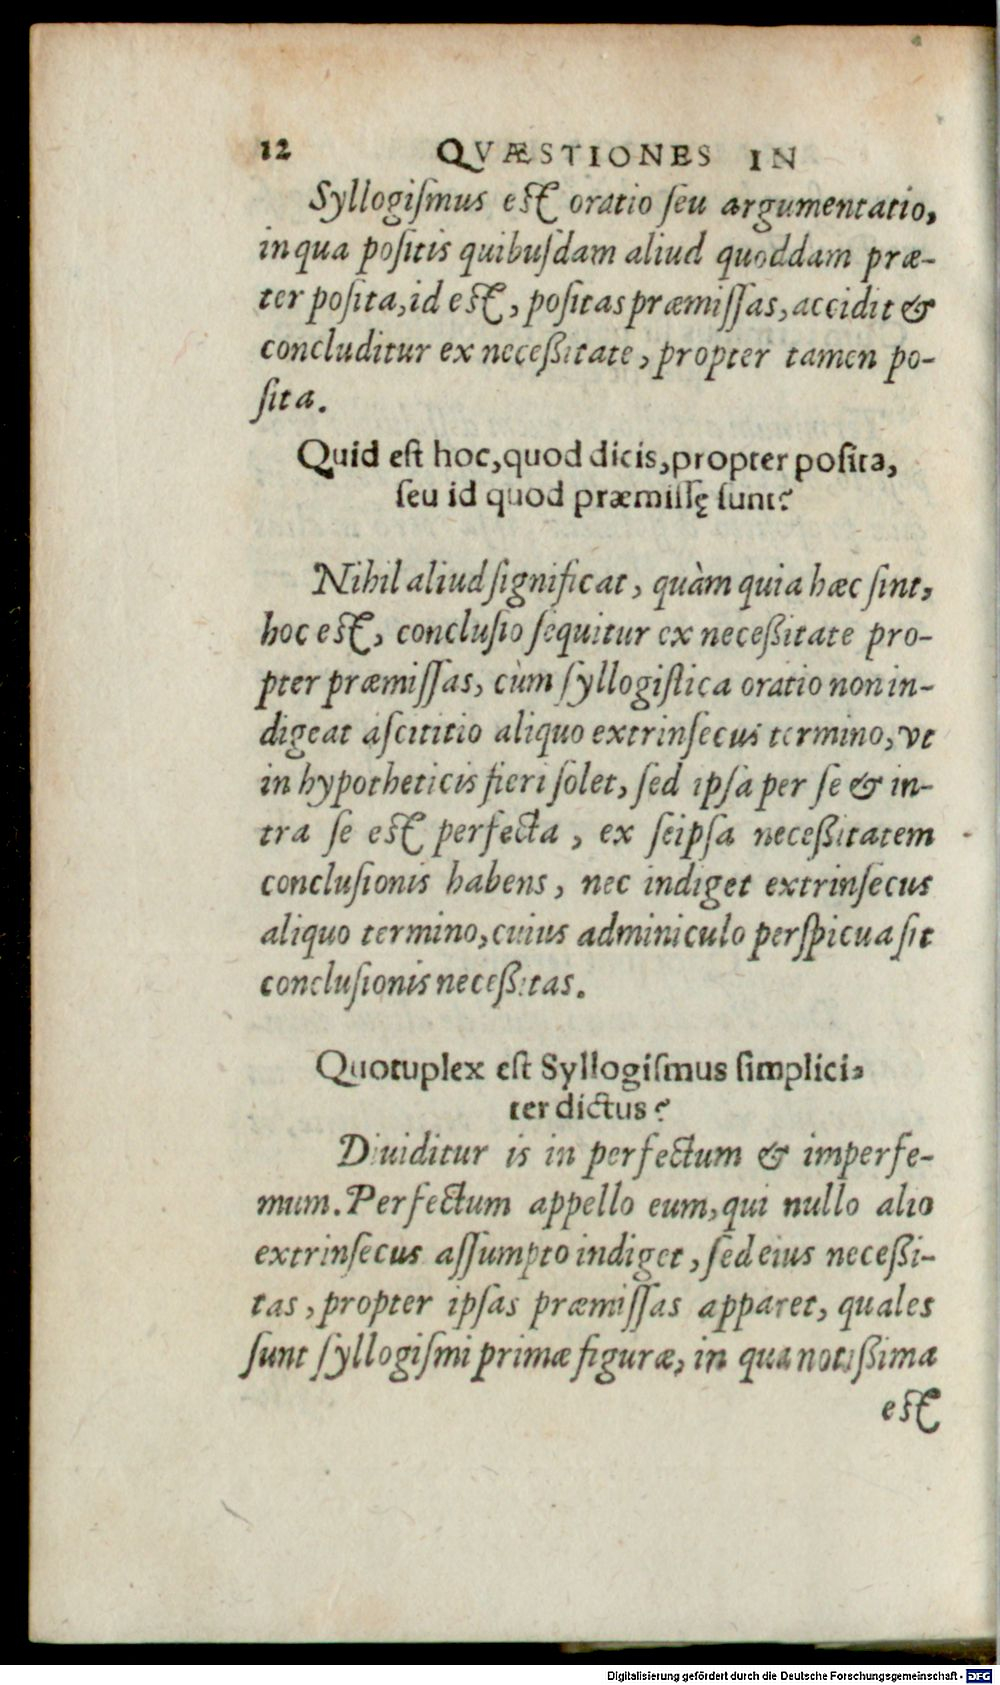 12 QVÆSTIONES IN
Syllogiſmus eſt oratio ſeu argumentatio,
in qua poſitis quibuſdam aliud quoddam præ-
ter poſita, id eſt, poſitas præmiſſas, accidit &
concluditur ex neceßitate, propter tamen po-
ſita.
Quid eſt hoc, quod dicis, propter poſita,
ſeu id quod præmiſſę ſunt?
Nihil aliud ſignificat, quàm quia hæc ſint,
hoc eſt, concluſio ſequitur ex neceßitate pro-
pter præmiſſas, cùm ſyllogiſtica oratio non in-
digeat aſcititio aliquo extrinſecus termino, vt
in hypotheticis fieri ſolet, ſed ipſa per ſe & in-
tra ſe eſt perfecta, ex ſeipſa neceßitatem
concluſionis habens, nec indiget extrinſecus
aliquo termino, cuius adminiculo perſpicua ſit
concluſionis neceßitas.
Quotuplex eſt Syllogiſmus ſimplici-
ter dictus?
Diuiditur is in perfectum & imperfe-
mum. Perfectum appello eum, qui nullo alio
extrinſecus aſſumpto indiget, ſed eius neceßi-
tas, propter ipſas præmiſſas apparet, quales
ſunt ſyllogiſmi primæ figuræ, in qua notißima
eſt
Digitalisierung gefördert durch die Deutsche Forschungsgemeinschaft - DFG